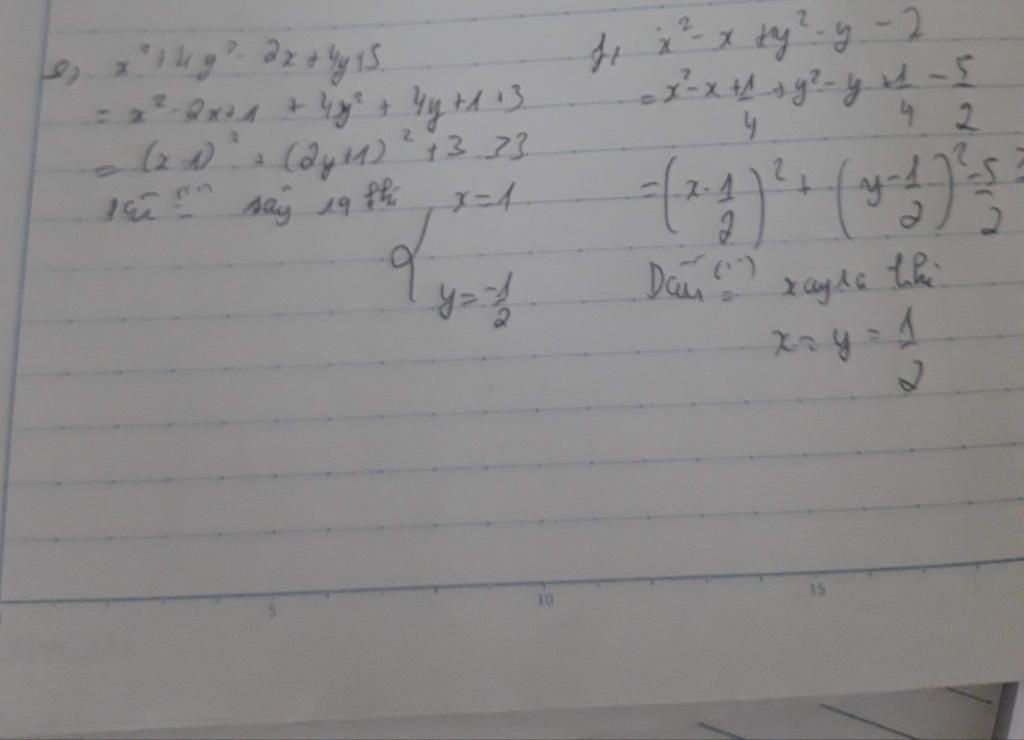 e, x² + 4y² - 2x + 4y + 5
= x² - 2x + 1 + 4y² + 4y + 1 + 3
= (x - 1)² + (2y + 1)² + 3 ≥ 3
Dấu "=" xảy ra khi x = 1
y = -1/2
f, x² - x + y² - y - 2
= x² - x + 1/4 + y² - y + 1/4 - 5/2
= (x - 1/2)² + (y - 1/2)² - 5/2
Dấu "=" xảy ra khi
x = y = 1/2
5 10 15